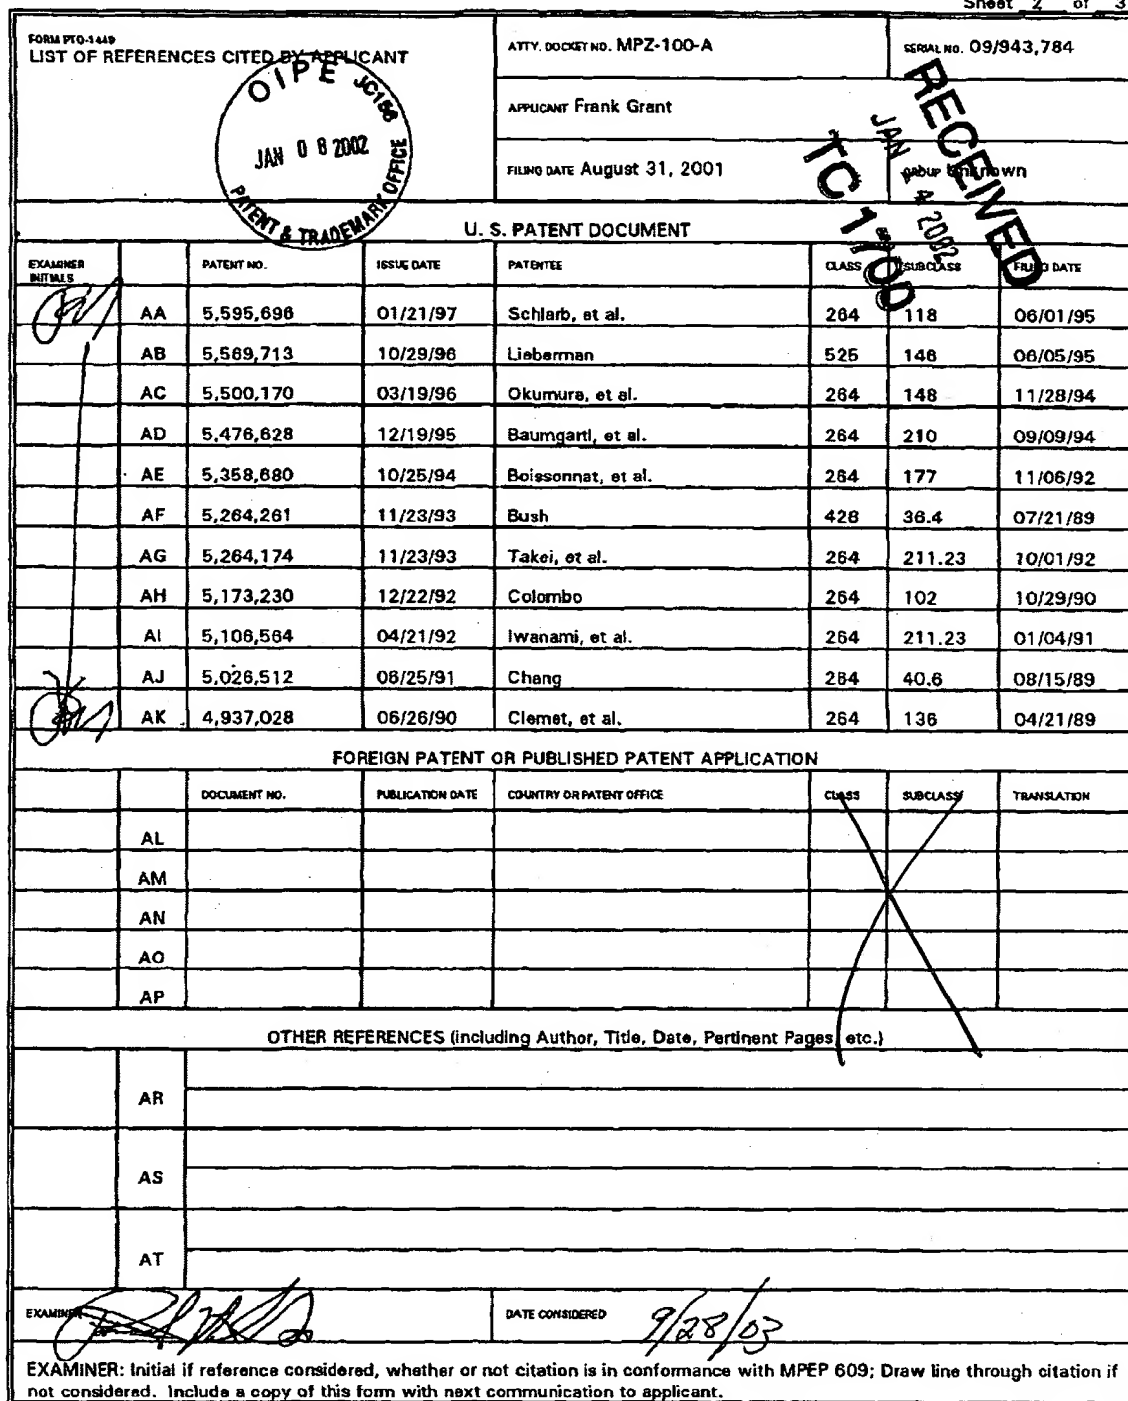 Sheet 2 of 3
FORM PTO-1449
LIST OF REFERENCES CITED BY APPLICANT
ATTY. DOCKET NO. MPZ-100-A
SERIAL NO. 09/943,784
APPLICANT Frank Grant
FILING DATE August 31, 2001
Unknown
OIPE JC156
JAN 08 2002
PATENT & TRADEMARK OFFICE
RECEIVED
JAN 4 2002
TC 1700
U. S. PATENT DOCUMENT
EXAMINER INITIALS PATENT NO. ISSUE DATE PATENTEE CLASS SUBCLASS FILING DATE
AA 5,595,696 01/21/97 Schlarb, et al. 264 118 06/01/95
AB 5,569,713 10/29/96 Lieberman 525 146 06/05/95
AC 5,500,170 03/19/96 Okumura, et al. 264 148 11/28/94
AD 5,476,628 12/19/95 Baumgartl, et al. 264 210 09/09/94
AE 5,358,680 10/25/94 Boissonnat, et al. 264 177 11/06/92
AF 5,264,261 11/23/93 Bush 428 36.4 07/21/89
AG 5,264,174 11/23/93 Takei, et al. 264 211.23 10/01/92
AH 5,173,230 12/22/92 Colombo 264 102 10/29/90
AI 5,106,564 04/21/92 Iwanami, et al. 264 211.23 01/04/91
AJ 5,026,512 06/25/91 Chang 264 40.6 08/15/89
AK 4,937,028 06/26/90 Clemet, et al. 264 136 04/21/89
FOREIGN PATENT OR PUBLISHED PATENT APPLICATION
DOCUMENT NO. PUBLICATION DATE COUNTRY OR PATENT OFFICE CLASS SUBCLASS TRANSLATION
AL
AM
AN
AO
AP
OTHER REFERENCES (including Author, Title, Date, Pertinent Pages, etc.)
AR
AS
AT
EXAMINER
DATE CONSIDERED 9/28/03
EXAMINER: Initial if reference considered, whether or not citation is in conformance with MPEP 609; Draw line through citation if
not considered. Include a copy of this form with next communication to applicant.